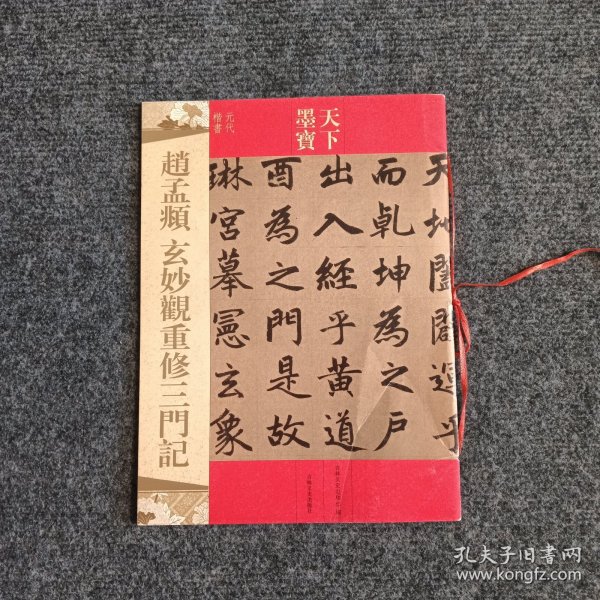 元代
楷書
天下
墨寶
趙孟頫 玄妙觀重修三門記
天地闔闢運乎
而乹坤為之戶
出入經乎黃道
酉為之門是故
琳宮摹憲玄象
孔夫子旧書网
www.kongfz.com